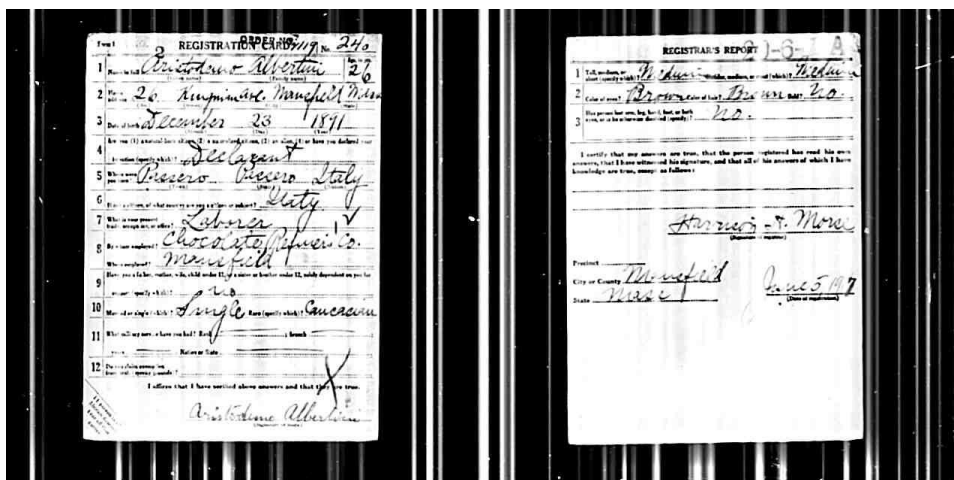 Form 1 2 REGISTRATION CARD ORDER NO. 119 No. 240
1 Name in full Aristodemo Albertini Age in yrs. 26
(Given name) (Family name)
2 Home address 26 Ave. Mansfield Mass
3 Date of birth December 23 1891
(Month) (Day) (Year)
4 Are you (1) a natural-born citizen, (2) a naturalized citizen, (3) an alien, (4) or have you declared your
intention (specify which)? Declarant
5 Where were you born? Pessero Pessero Italy
(Town) (State) (Nation)
6 If not a citizen, of what country are you a citizen or subject? Italy
7 What is your present trade, occupation, or office? Laborer
8 By whom employed? Chocolate Refiners Co.
Where employed? Mansfield
9 Have you a father, mother, wife, child under 12, or a sister or brother under 12, solely dependent on you for
support (specify which)? no
10 Married or single (which)? Single Race (specify which)? Caucasian
11 What military service have you had? Rank ; branch
years ; Nation or State
12 Do you claim exemption from draft (specify grounds)?
I affirm that I have verified above answers and that they are true.
Aristodemo Albertini
(Signature or mark)
REGISTRAR'S REPORT 20-6-1 A
1 Tall, medium, or short (specify which)? Medium Slender, medium, or stout (which)? Medium
2 Color of eyes? Brown Color of hair? Brown Bald? No.
3 Has person lost arm, leg, hand, foot, or both eyes, or is he otherwise disabled (specify)? No.
I certify that my answers are true, that the person registered has read his own
answers, that I have witnessed his signature, and that all of his answers of which I have
knowledge are true, except as follows:
Harrison T. Morse
(Signature of registrar)
Precinct
City or County Mansfield
State Mass June 5, 1917
(Date of registration)